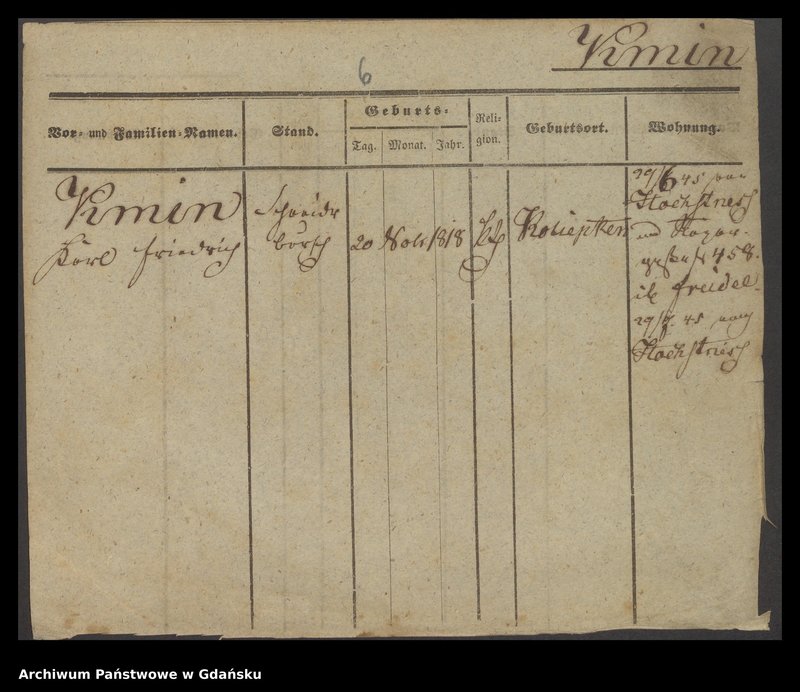 Kmin
6
Vor- und Familien-Namen.
Stand.
Geburts-
Tag.
Monat.
Jahr.
Reli-
gion.
Geburtsort.
Wohnung.
Kmin
Karl Friedrich
Schneider
bursch
20
Nobr
1818
Kth
Koliepken
29/6 45 von
Hochstriess
458.
bei Freidel
29/9. 45 nach
Hochstriess
Archiwum Państwowe w Gdańsku